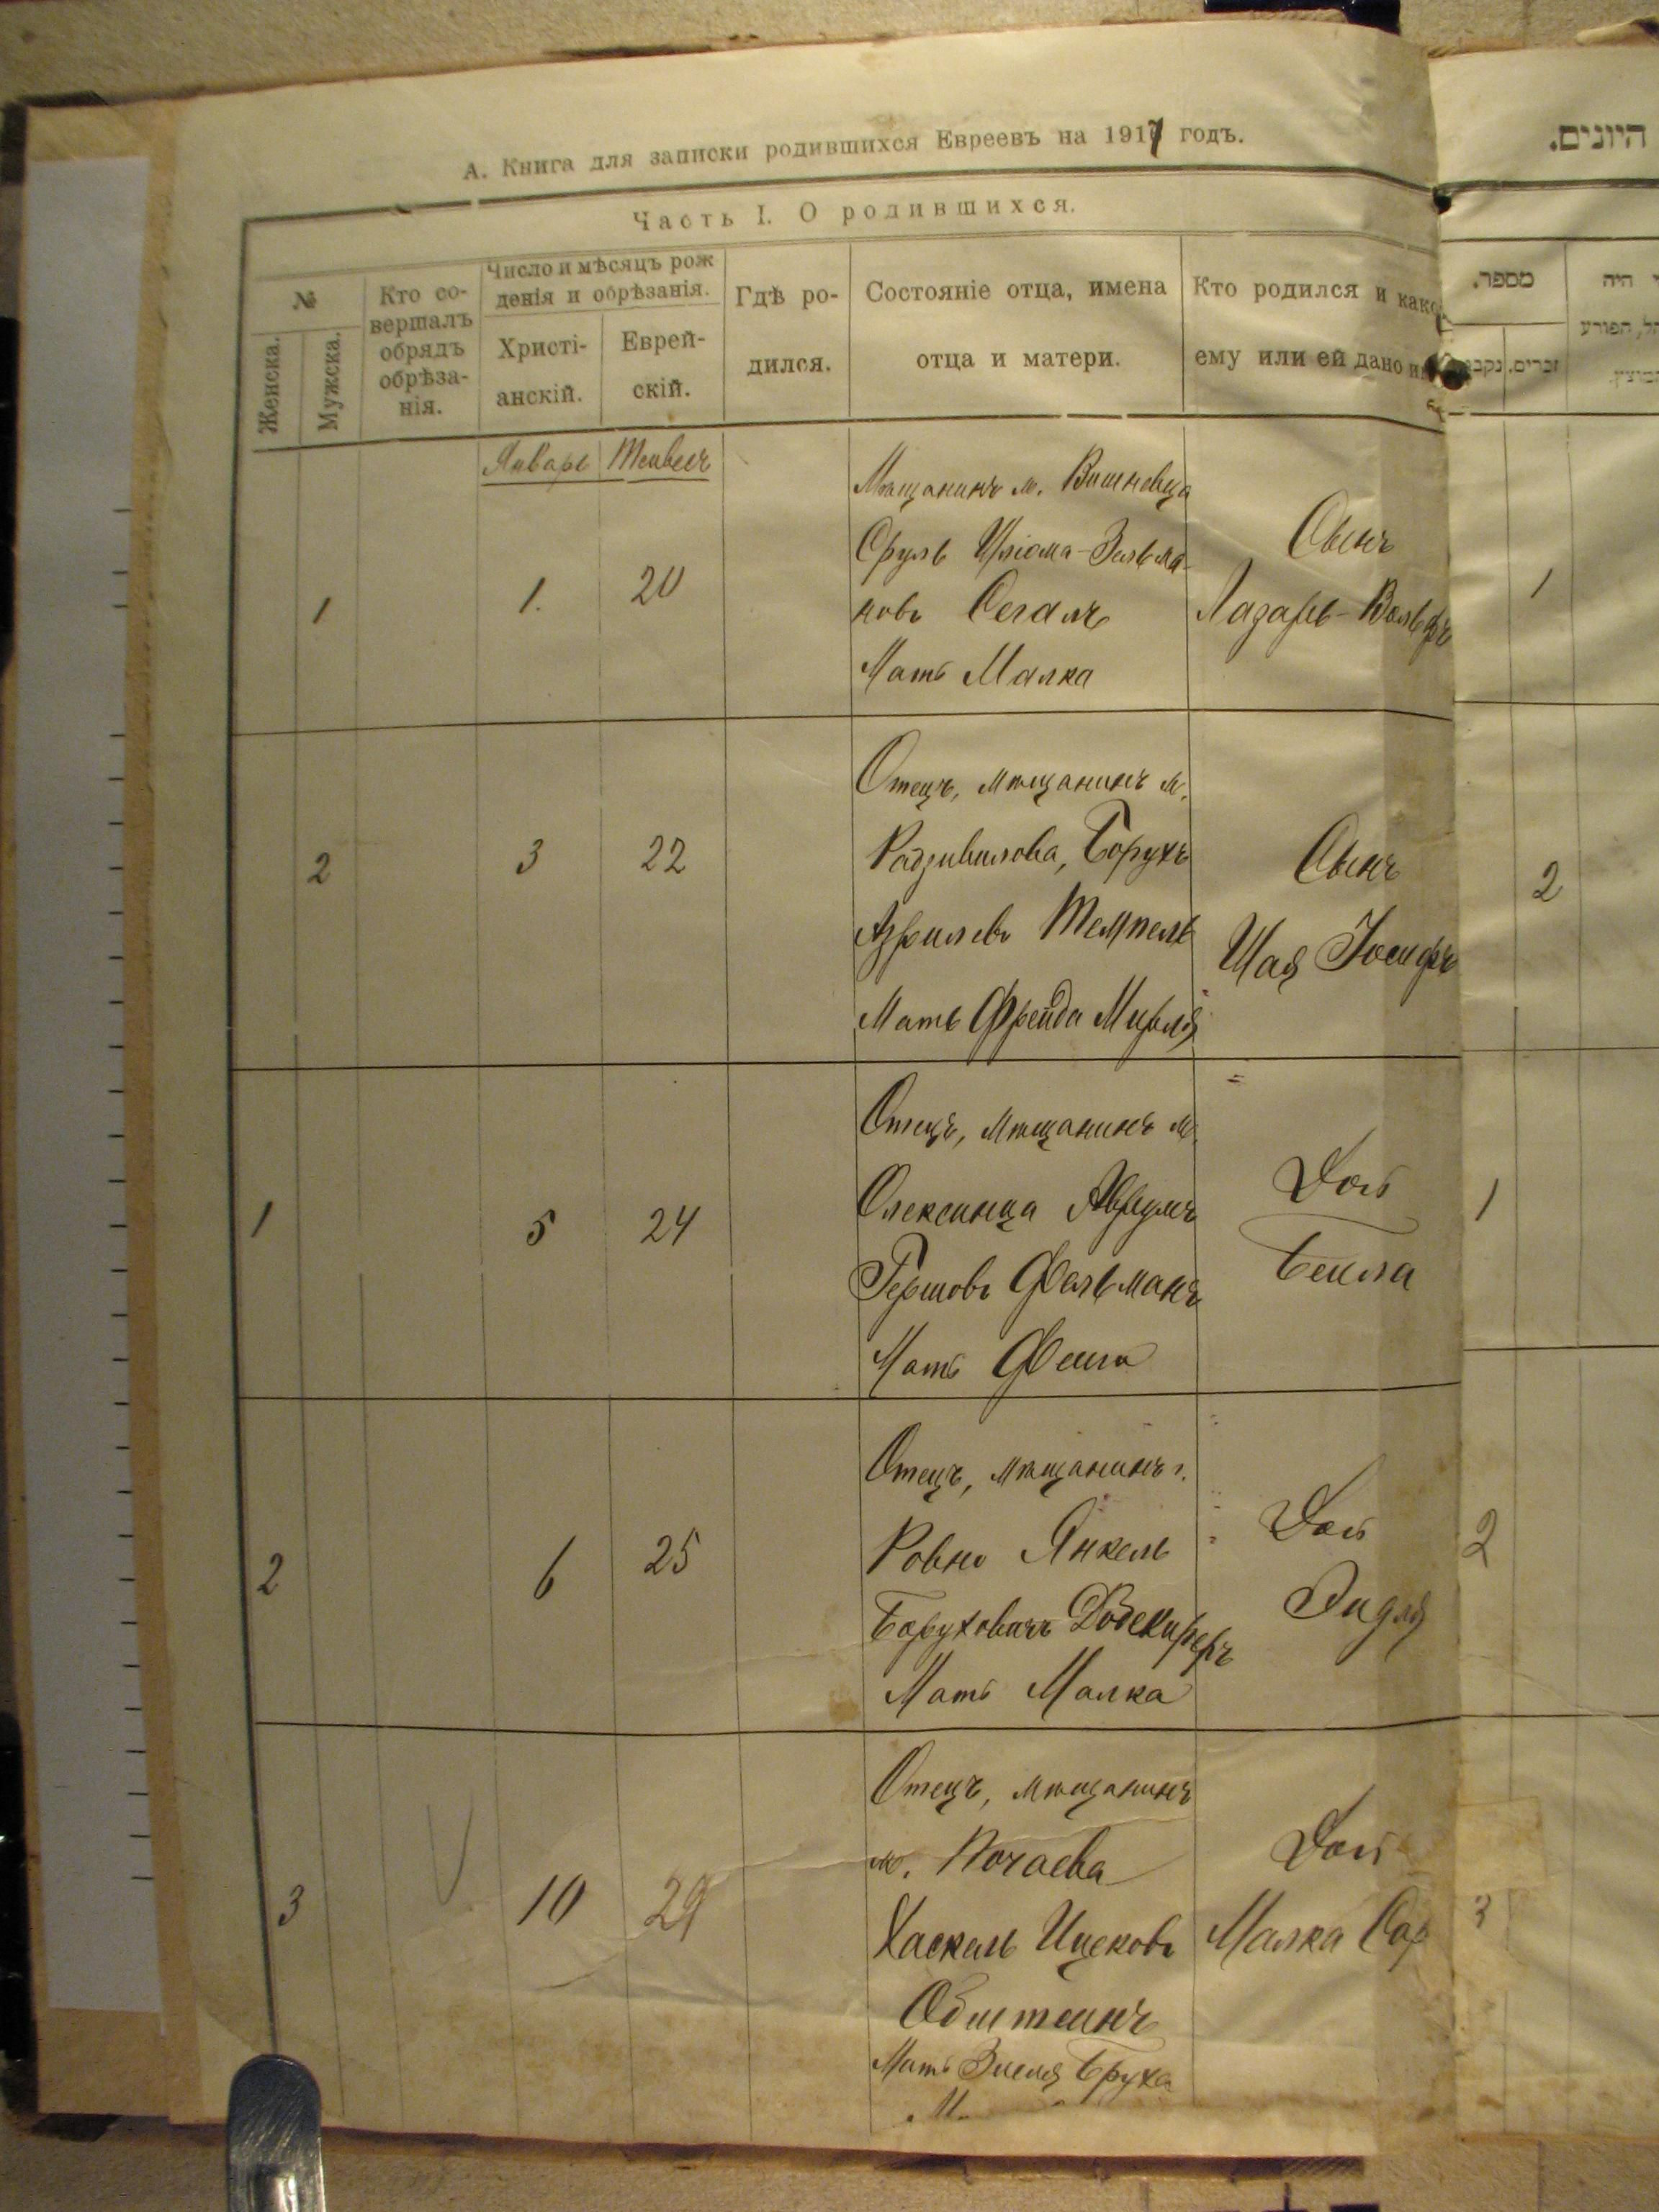 А. Книга для записки родившихся Евреевъ на 1917 годъ.
היונים.
Часть I. О родившихся.
№
Женска.
Мужска.
Кто со-
вершалъ
обрядъ
обрѣза-
нія.
Число и мѣсяцъ рож
денія и обрѣзанія.
Христі-
анскій.
Еврей-
скій.
Гдѣ ро-
дился.
Состояніе отца, имена
отца и матери.
Кто родился и како
ему или ей дано
מספר.
זכרים.
היה
הפורע
Январь
Тейвесъ
1
1.
20
Мѣщанинъ м. Вишневца
Сруль Шліома-Зельма-
новъ Сегалъ
Мать Малка
Сынъ
Лазарь-Вольфъ
1
2
3
22
Отецъ, мѣщанинъ м.
Радзивилова, Борухъ
Азрилевъ Темпель
Мать Фрейда Мирля
Сынъ
Шая Іосифъ
2
1
5
24
Отецъ, мѣщанинъ м.
Олексинца Аврумъ
Гершовъ Фельманъ
Мать Фейга
Доч
Бейла
1
2
6
25
Отецъ, мѣщанинъ г.
Ровно Янкель
Боруховичъ
Мать Малка
Доч
Эидля
2
3
10
29
Отецъ, мѣщанинъ
м. Почаева
Хаскель Ицековъ
Обштейнъ
Мать Бруха
Доч
Малка Сар
3